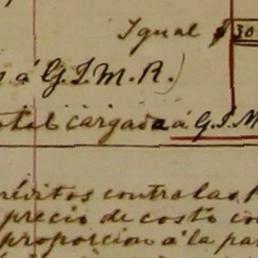 Igual $ 30
s á G.I.M.R.)
otal cargada á G.I.M
réditos contra las
precio de costo co
proporcion á la par